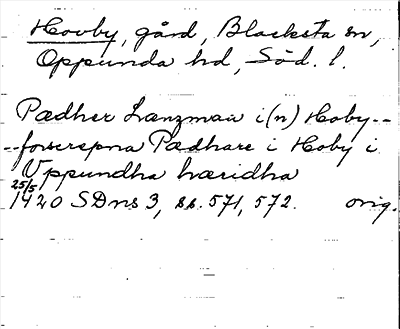 Hovby, gård, Blacksta sn,
Oppunda hd, Söd. l.
Pædher Lænzman i (n) Hoby --
-- forscrepna Pædhare i Hoby i
Vppundha hæridha
25/5
1420 SDns 3, ss. 571, 572. orig.